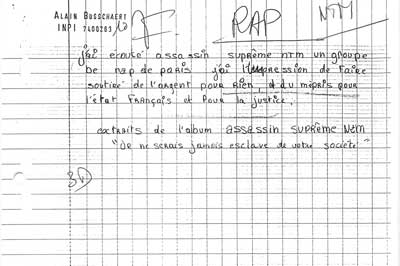 ALAIN BUSSCHAERT
INPI 7400283
RAP
NTM
j'ai écouté assassin suprême ntm un groupe
de rap de PARIS j'ai l'impression de faire
soutiré de l'argent pour RIEN, et du mépris pour
l'état FRANÇAIS et POUR la justice.
extraits de l'album assassin suprême Ntm
"Je ne serais jamais esclave de votre société"